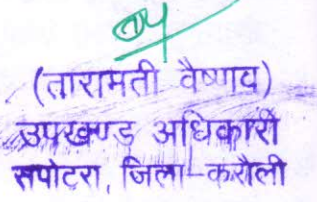 (तारामती वैष्णव)
उपखण्ड अधिकारी
सपोटरा, जिला-करौली